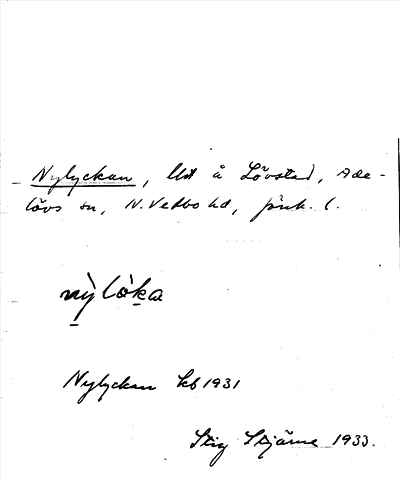 Nylyckan, lht å Lövstad, Ade-
lövs sn, N. Vedbo hd, jönk. l.
nỳlòka
Nylyckan kb 1931
Stig Stjärne 1933.